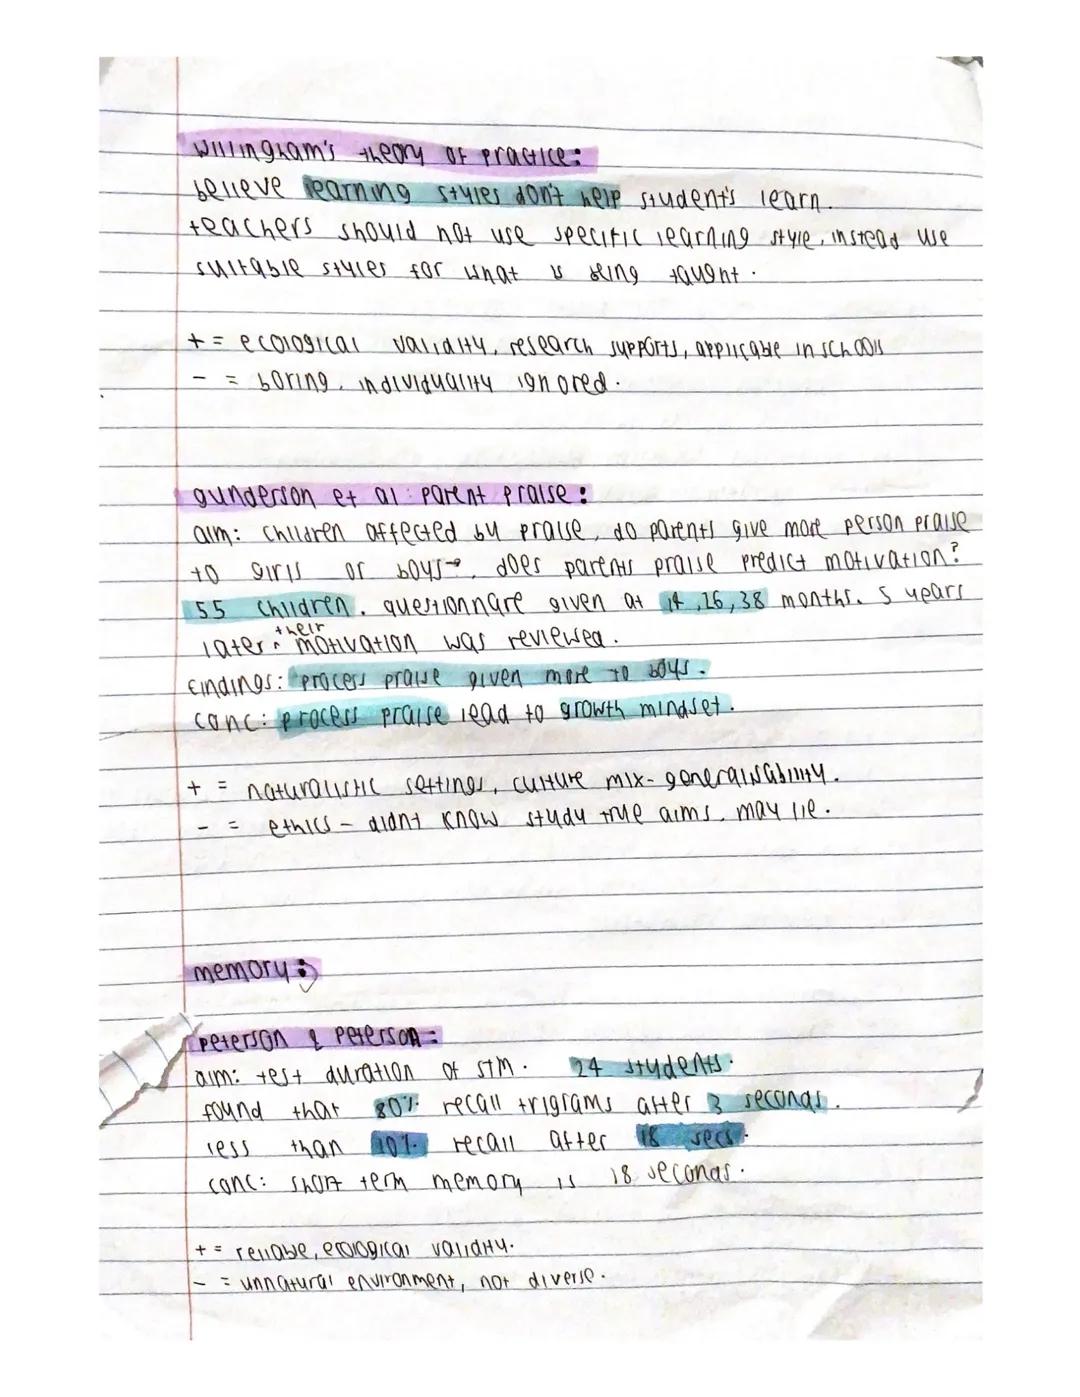 Willingham's theory of practice:
believe learning styles don't help student's learn.
teachers should not use specific learning style, instead use
suitable styles for what is being taught.
+ = ecological validity, research supports, applicable in schools
- = boring, individuality ignored.
gunderson et al: parent praise:
aim: children affected by praise, do parents give more person praise
to girls or boys, does parents praise predict motivation?
55 children. questionnare given at 14, 26, 38 months. 5 years
later their motivation was reviewed.
findings: process praise given more to boys.
conc: process praise lead to growth mindset.
+ = naturalistic settings, culture mix - generalisability.
- = ethics - didnt know study true aims, may lie.
memory:
peterson & peterson =
aim: test duration of STM. 24 students.
found that 80% recall trigrams after 3 seconds.
less than 10% recall after 18 secs.
conc: short term memory is 18 seconds.
+ = reliable, ecological validity.
- = unnatural environment, not diverse.